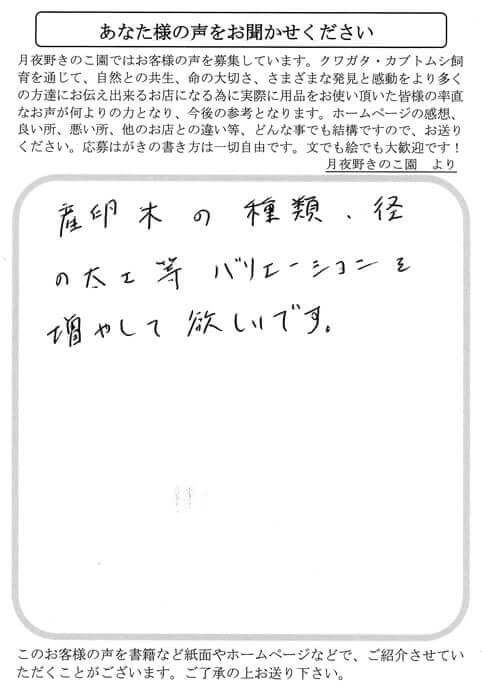 あなた様の声をお聞かせください
月夜野きのこ園ではお客様の声を募集しています。クワガタ・カブトムシ飼
育を通じて、自然との共生、命の大切さ、さまざまな発見と感動をより多く
の方達にお伝え出来るお店になる為に実際に用品をお使い頂いた皆様の率直
なお声が何よりの力となり、今後の参考となります。ホームページの感想、
良い所、悪い所、他のお店との違い等、どんな事でも結構ですので、お送り
ください。応募はがきの書き方は一切自由です。文でも絵でも大歓迎です！
月夜野きのこ園　より
産卵木の種類、径
の太さ等バリエーションを
増やして欲しいです。
このお客様の声を書籍など紙面やホームページなどで、ご紹介させてい
ただくことがございます。ご了承の上お送り下さい。